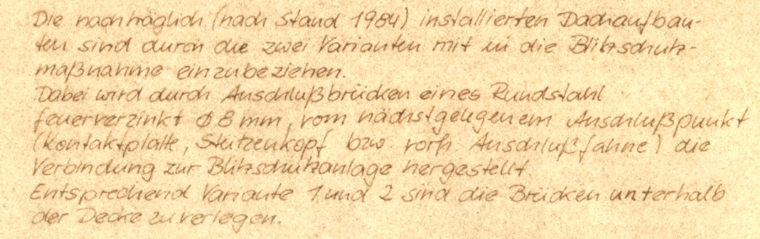 Die nachträglich (nach Stand 1984) installierten Dachaufbau-
ten sind durch die zwei Varianten mit in die Blitzschutz-
maßnahme einzubeziehen.
Dabei wird durch Anschlußbrücken eines Rundstahl
feuerverzinkt Ø 8 mm, vom nächstgelegenem Anschlußpunkt
(Kontaktplatte, Stützenkopf bzw. vorh. Anschlußfahne) die
Verbindung zur Blitzschutzanlage hergestellt.
Entsprechend Variante 1 und 2 sind die Brücken unterhalb
der Decke zu verlegen.